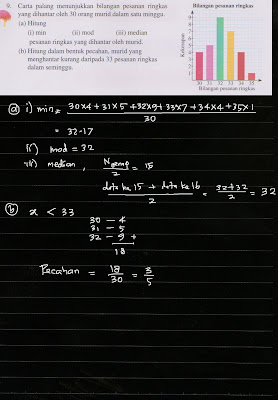 9. Carta palang menunjukkan bilangan pesanan ringkas
yang dihantar oleh 30 orang murid dalam satu minggu.
(a) Hitung
(i) min (ii) mod (iii) median
pesanan ringkas yang dihantar oleh murid.
(b) Hitung dalam bentuk pecahan, murid yang
menghantar kurang daripada 33 pesanan ringkas
dalam seminggu.
Bilangan pesanan ringkas
Kekerapan
9
8
7
6
5
4
3
2
1
30 31 32 33 34 35
Bilangan pesanan ringkas
(a) i) min = 30x4 + 31x5 + 32x9 + 33x7 + 34x4 + 35x1
30
= 32.17
ii) mod = 32
iii) median, Ngenap = 15
2
data ke 15 + data ke 16 = 32+32 = 32
2 2
(b) x < 33
30 – 4
31 – 5
32 – 9 +
18
Pecahan = 18 = 3
30 5